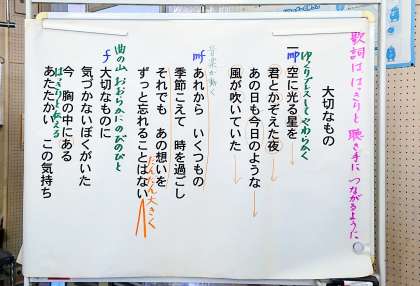 歌詞は はっきりと 聴き手に つながるように
大切なもの
ゆっくりブレスしてやわらかく
mp
一 空に光る星を
君とかぞえた夜
あの日も今日のような
風が吹いていた
言葉が動く
mf
あれから いくつもの
季節こえて 時を過ごし
それでも あの想いを
ずっと忘れることはない
だんだん大きく
曲の山 おおらかにのびのびと
f
大切なものに
気づかないぼくがいた
今 胸の中にある
はっきりと伝える
あたたかい この気持ち